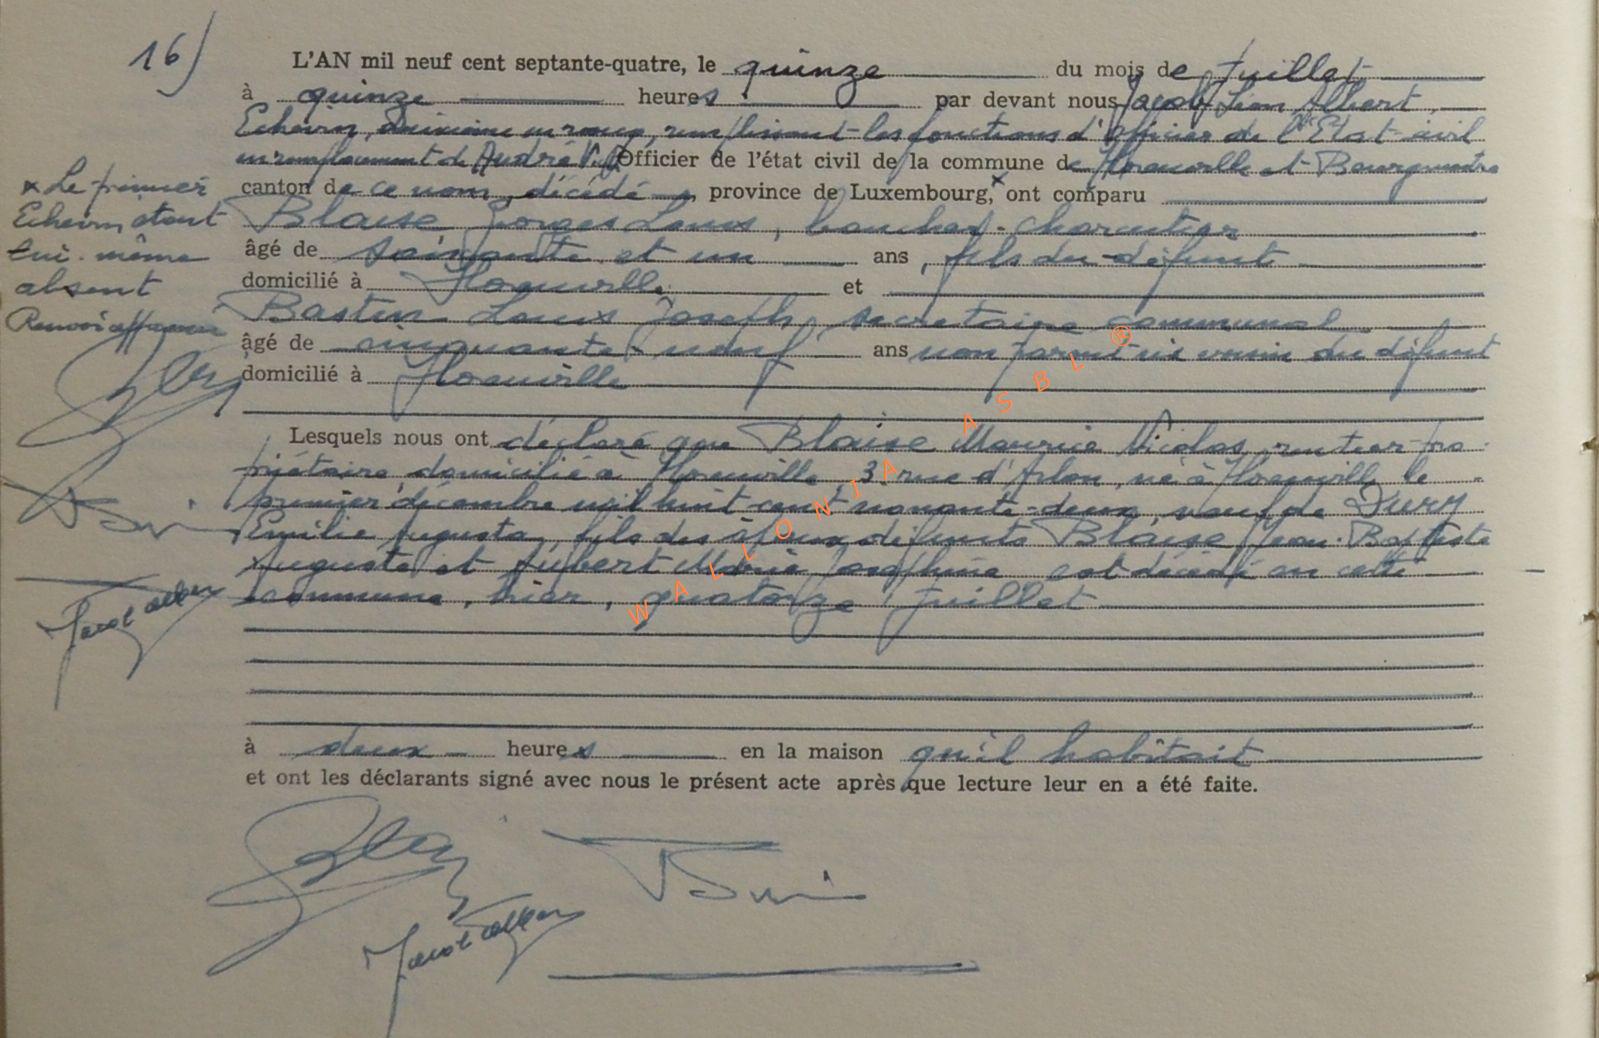 16)
L'AN mil neuf cent septante-quatre, le quinze du mois de juillet
à quinze heures par devant nous Jacob Léon Albert,
Echevin, deuxième en rang, remplissant les fonctions d'Officier de l'Etat-civil
en remplacement de André V. Officier de l'état civil de la commune de et Bourgmestre
canton de ce nom, décédé, province de Luxembourg,× ont comparu
× Le premier
Echevin étant
lui-même
absent
Blaise Georges Louis, boucher-charcutier
âgé de soixante et un ans, fils du défunt
domicilié à et
Bastin Louis Joseph, secrétaire communal
âgé de cinquante-neuf ans non parent ni voisin du défunt
domicilié à
Lesquels nous ont déclaré que Blaise Maurice Nicolas, rentier-pro-
priétaire, domicilié à 3 rue d'Arlon, né à le
premier décembre mil huit cent nonante-deux, veuf de Dury
Emilie Augusta, fils des époux défunts Blaise Jean-Baptiste
Auguste et Aubert Marie Joséphine est décédé en cette
commune, hier, quatorze juillet
à deux heures en la maison qu'il habitait
et ont les déclarants signé avec nous le présent acte après que lecture leur en a été faite.
WALLONIA ASBL ®